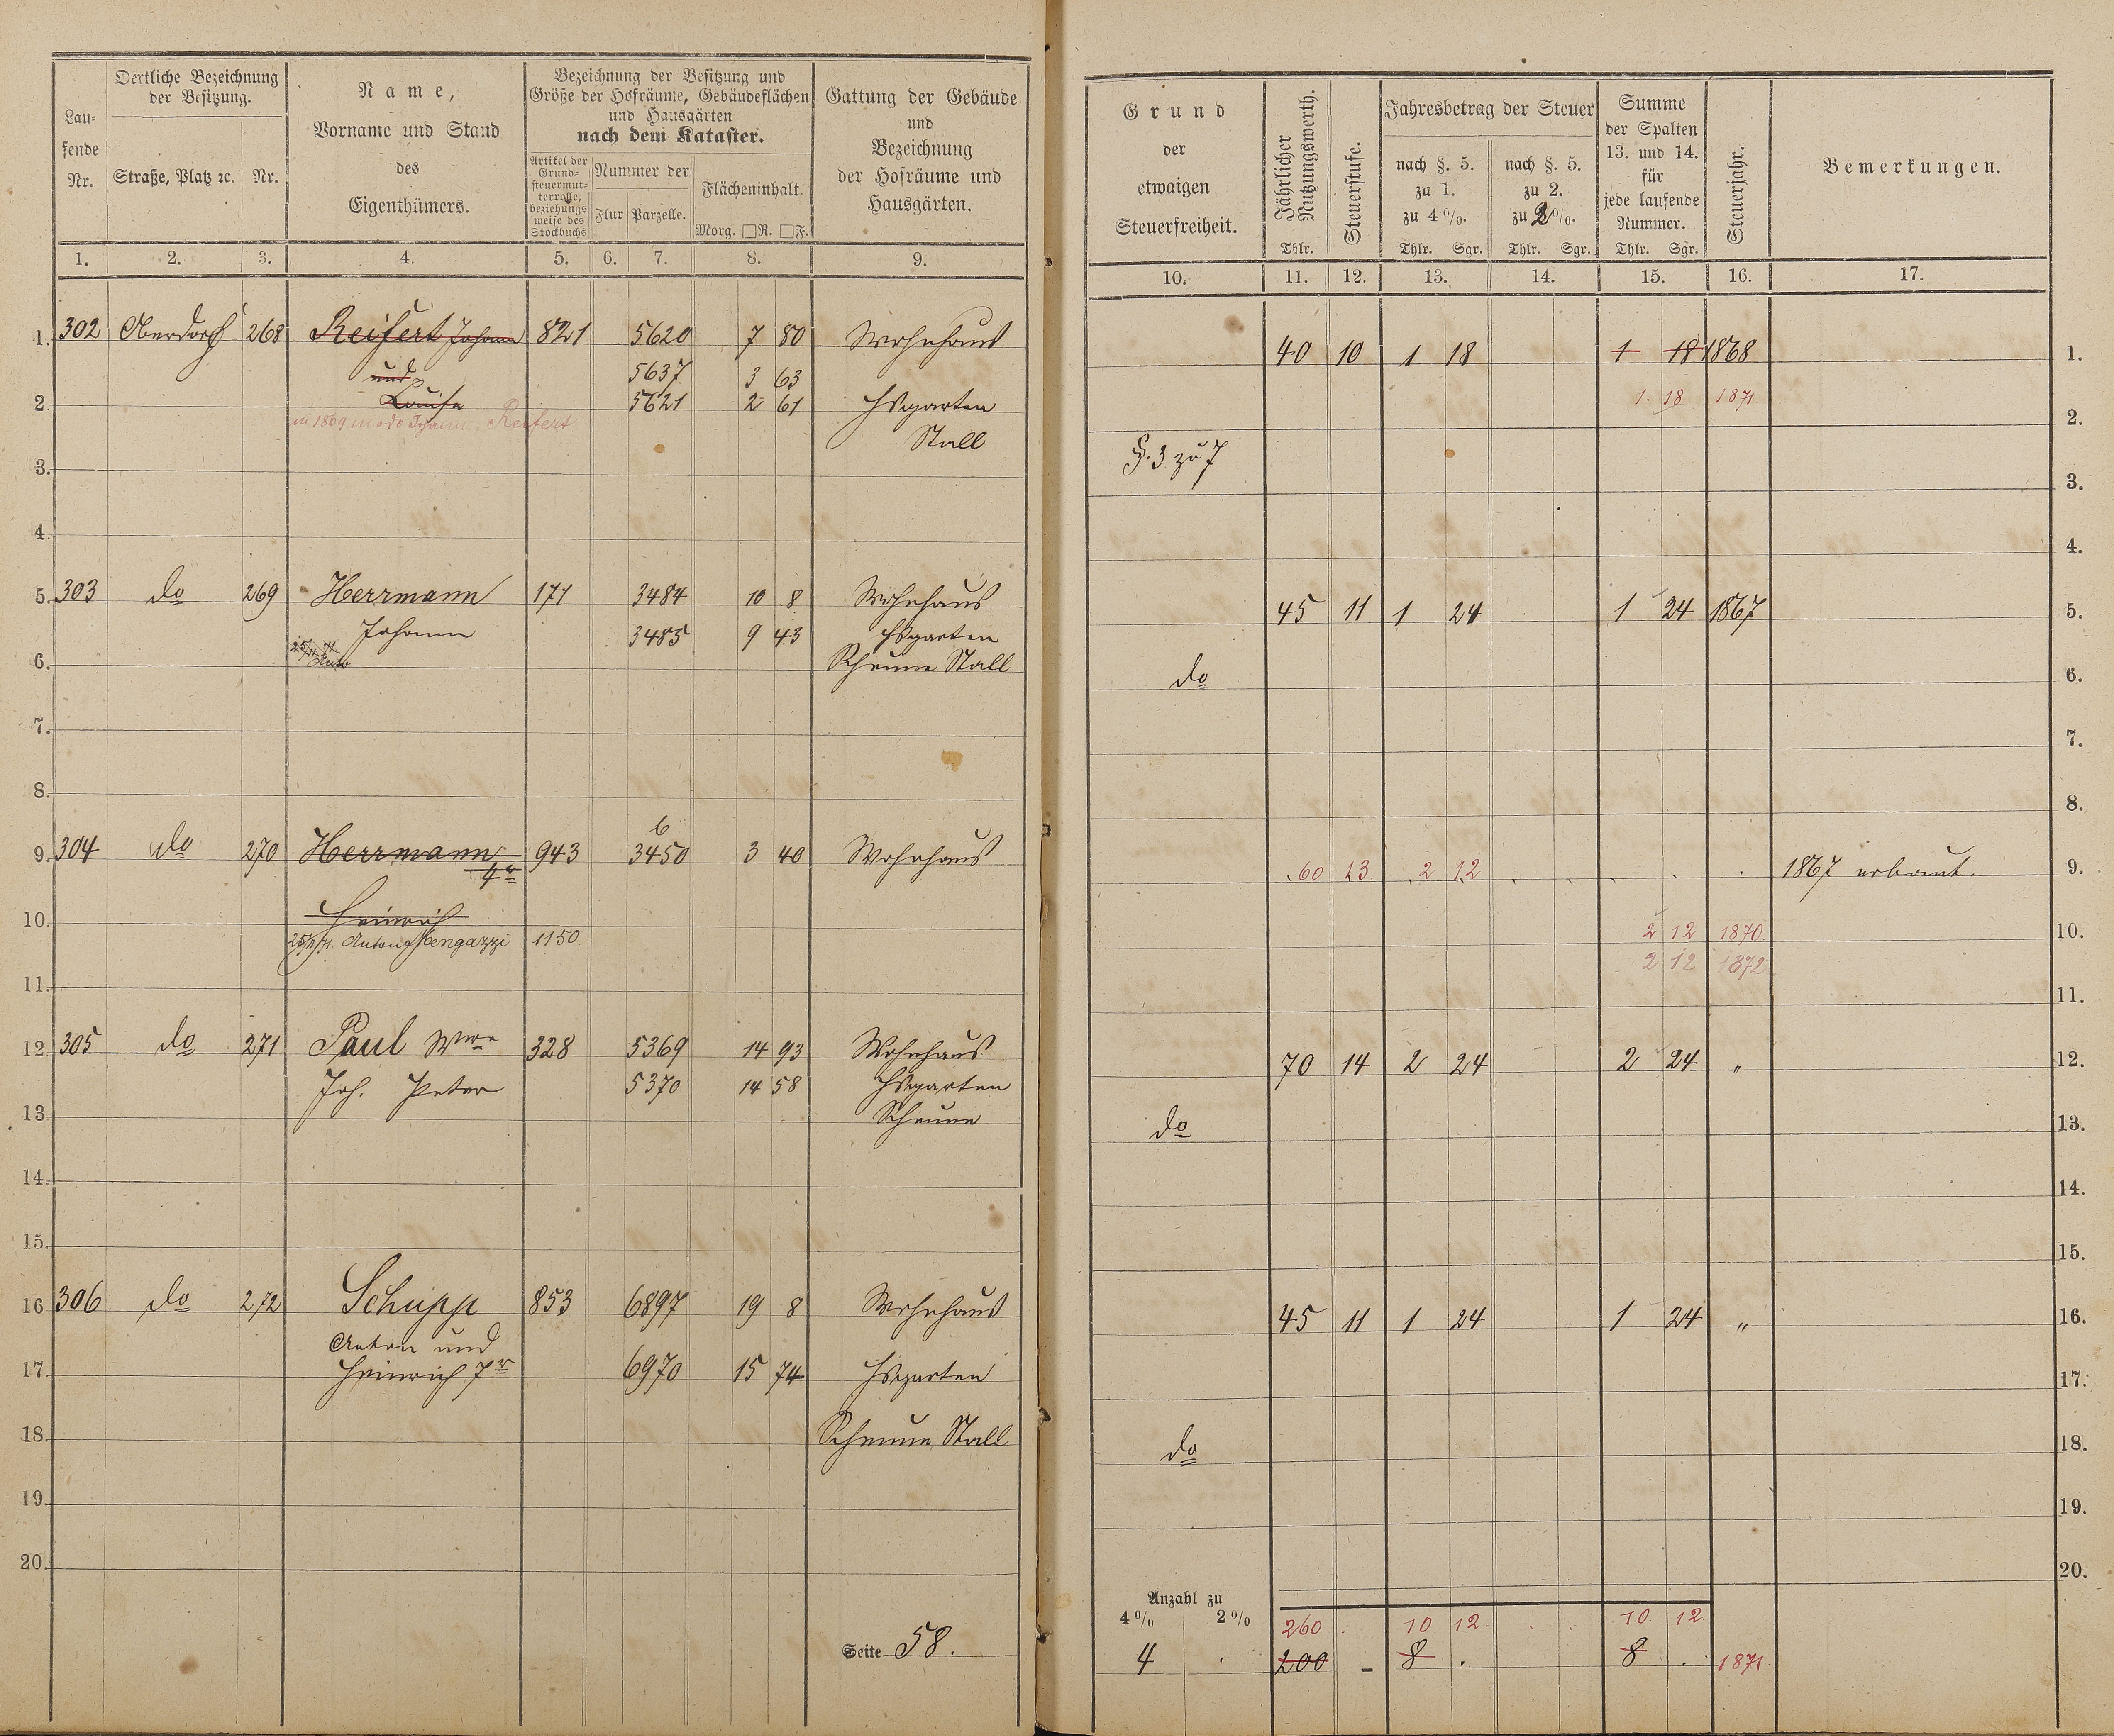 Oertliche Bezeichnung der Besitzung.
Lau-
fende
Nr.
Straße, Platz ꝛc.
Nr.
Name,
Vorname und Stand
des
Eigenthümers.
Bezeichnung der Besitzung und
Größe der Hofräume, Gebäudeflächen
und Hausgärten
nach dem Kataster.
Artikel der
Grund-
steuermut-
terrolle,
beziehungs
weise des
Stockbuchs
Nummer der
Flur Parzelle.
Flächeninhalt.
Morg. □R. □F.
Gattung der Gebäude
und
Bezeichnung
der Hofräume und
Hausgärten.
1. 2. 3. 4. 5. 6. 7. 8. 9.
1. 302 Oberdorf 268 Reifert Johann 821 5620 7 80 Wohnhaus
und 5637 3 63
2. Louise 5621 2 61 Hsgarten
in 1869 modo Johann Reifert
Stall
3.
4.
5. 303 do 269 Herrmann 171 3484 10 8 Wohnhaus
Johann 3485 9 43 Hsgarten
6. Scheune Stall
7.
8.
6
9. 304 do 270 Herrmann 943 3450 3 40 Wohnhaus
4r
10. Heinrich
25/11/71. Anton 1150.
11.
12. 305 do 271 Paul Wwe 328 5369 14 93 Wohnhaus
Joh. Peter 5370 14 58 Hsgarten
13. Scheune
14.
15.
16 306 do 272 Schupp 853 6897 19 8 Wohnhaus
Anton und
17. Heinrich 7r 6970 15 74 Hsgarten
18. Scheune Stall
19.
20.
Seite 58.
Grund
der
etwaigen
Steuerfreiheit.
Jährlicher
Nutzungswerth.
Thlr.
Steuerstufe.
Jahresbetrag der Steuer
nach §. 5.
zu 1.
zu 4%.
Thlr. Sgr.
nach §. 5.
zu 2.
zu 2%.
Thlr. Sgr.
Summe
der Spalten
13. und 14.
für
jede laufende
Nummer.
Thlr. Sgr.
Steuerjahr.
Bemerkungen.
10. 11. 12. 13. 14. 15. 16. 17.
40 10 1 18 1 18 1868 1.
1. 18 1871.
2.
§. 3 zu 7
3.
4.
45 11 1 24 1 24 1867 5.
do 6.
7.
8.
60 13. 2 12 1867 erbaut. 9.
2 12 1870 10.
2 12 1872
11.
70 14 2 24 2 24 „ 12.
do 13.
14.
15.
45 11 1 24 1 24 „ 16.
17.
do 18.
19.
20.
Anzahl zu
4% 2% 260 . 10 12. . . 10. 12.
4 . 200 - 8 . 8 . 1871.